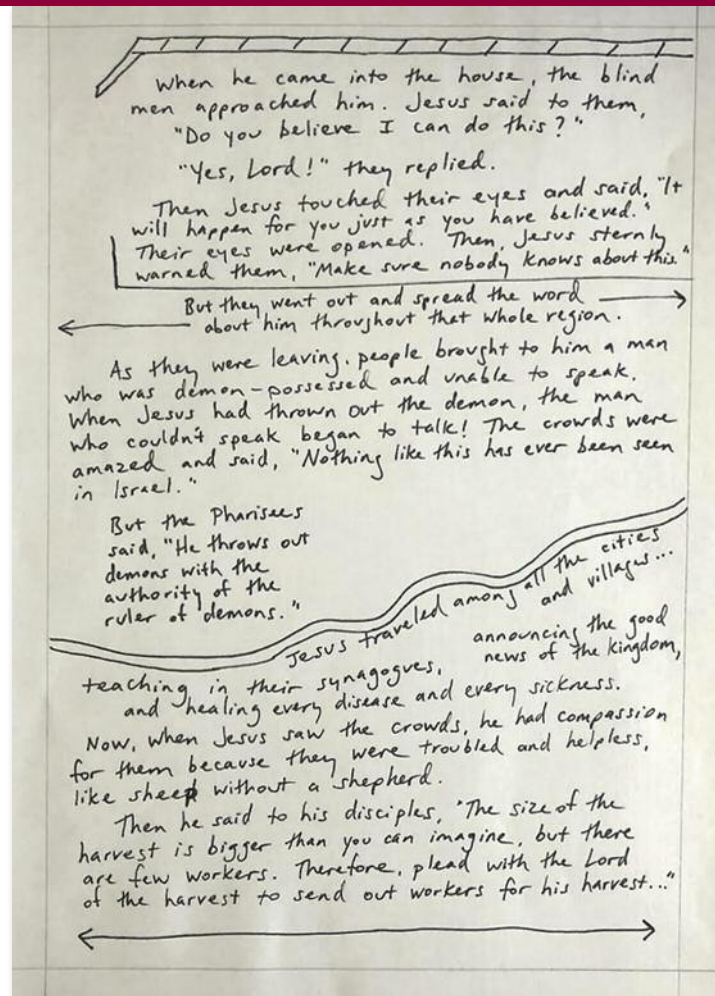 When he came into the house, the blind
men approached him. Jesus said to them,
"Do you believe I can do this?"
"Yes, Lord!" they replied.
Then Jesus touched their eyes and said, "It
will happen for you just as you have believed."
Their eyes were opened. Then, Jesus sternly
warned them, "Make sure nobody knows about this."
But they went out and spread the word
about him throughout that whole region.
As they were leaving, people brought to him a man
who was demon-possessed and unable to speak.
When Jesus had thrown out the demon, the man
who couldn't speak began to talk! The crowds were
amazed and said, "Nothing like this has ever been seen
in Israel."
But the Pharisees
said, "He throws out
demons with the
authority of the
ruler of demons."
Jesus traveled among all the cities
and villages...
teaching in their synagogues,
announcing the good
news of the kingdom,
and healing every disease and every sickness.
Now, when Jesus saw the crowds, he had compassion
for them because they were troubled and helpless,
like sheep without a shepherd.
Then he said to his disciples, "The size of the
harvest is bigger than you can imagine, but there
are few workers. Therefore, plead with the Lord
of the harvest to send out workers for his harvest..."